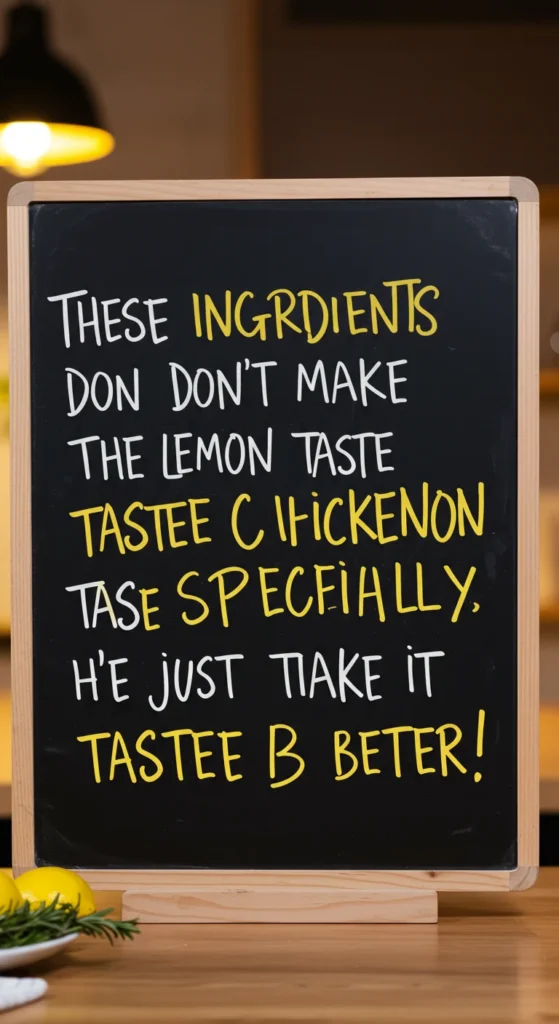 THESE INGRDIENTS
DON DON'T MAKE
THE LEMON TASTE
TASTEE CIHICKENON
TASE SPECFIHALLY,
H'E JUST TIAKE IT
TASTEE B BETER!